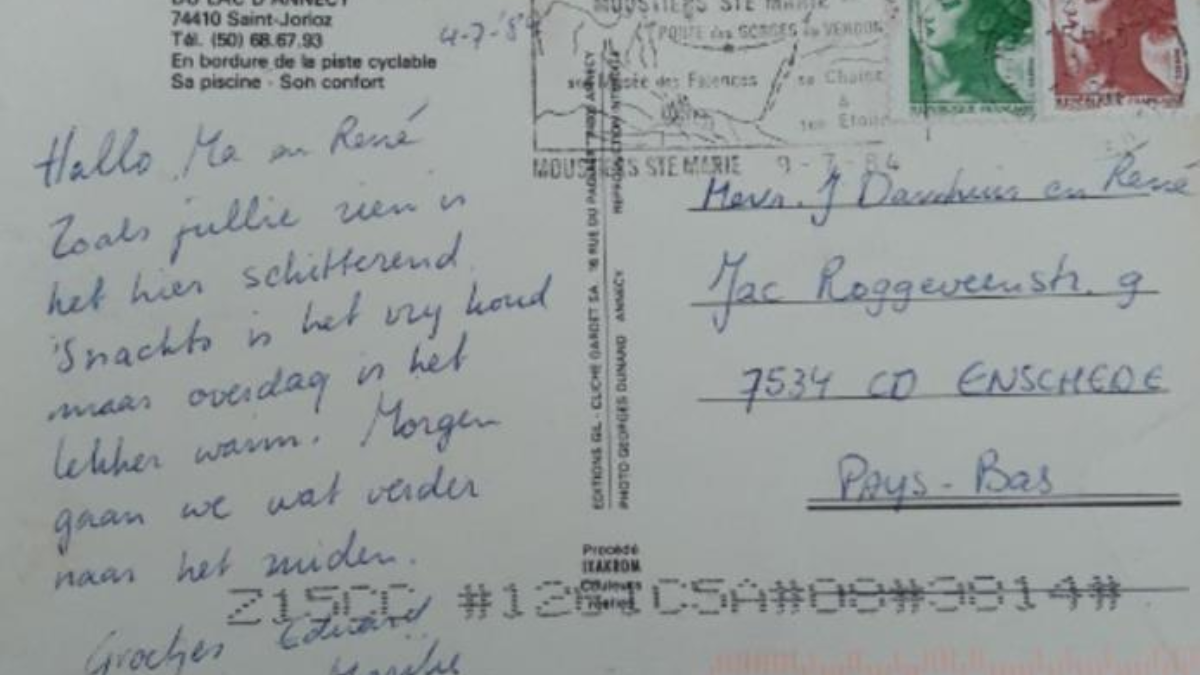 DU LAC D'ANNECY
74410 Saint-Jorioz
Tél. (50) 68.67.93
En bordure de la piste cyclable
Sa piscine - Son confort
4-7-'84
Hallo Ma en René
Zoals jullie zien is
het hier schitterend
'Snachts is het vrij koud
maar overdag is het
lekker warm. Morgen
gaan we wat verder
naar het zuiden.
Groetjes Edward
MOUSTIERS STE MARIE
PORTE des GORGES du VERDON
Musée des Faïences
sa Chaine
&
son Etoile
MOUSTIERS STE MARIE 9-7-84
REPUBLIQUE FRANÇAISE
REPUBLIQUE FRANÇAISE
EDITIONS GIL - CLICHE GARDET SA 16 RUE DU 74000 ANNECY
PHOTO GEORGES DUNAND ANNECY REPRODUCTION
Procédé
IXAKROM
Couleurs
Mevr. J en René
Jac Roggeveenstr. 9
7534 CD ENSCHEDE
PAYS-BAS